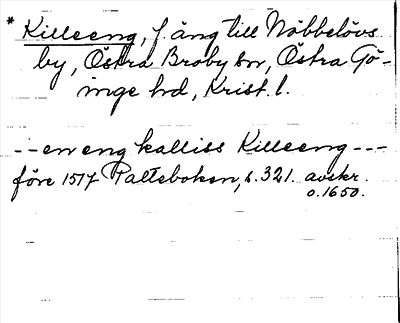 * Killeeng, f. äng till Nöbbelövs
by, Östra Broby sn, Östra Gö-
inge hd, Krist. l.
-- en eng kalliss Killeeng ---
före 1517 Palteboken, s. 321. avskr.
o. 1650.